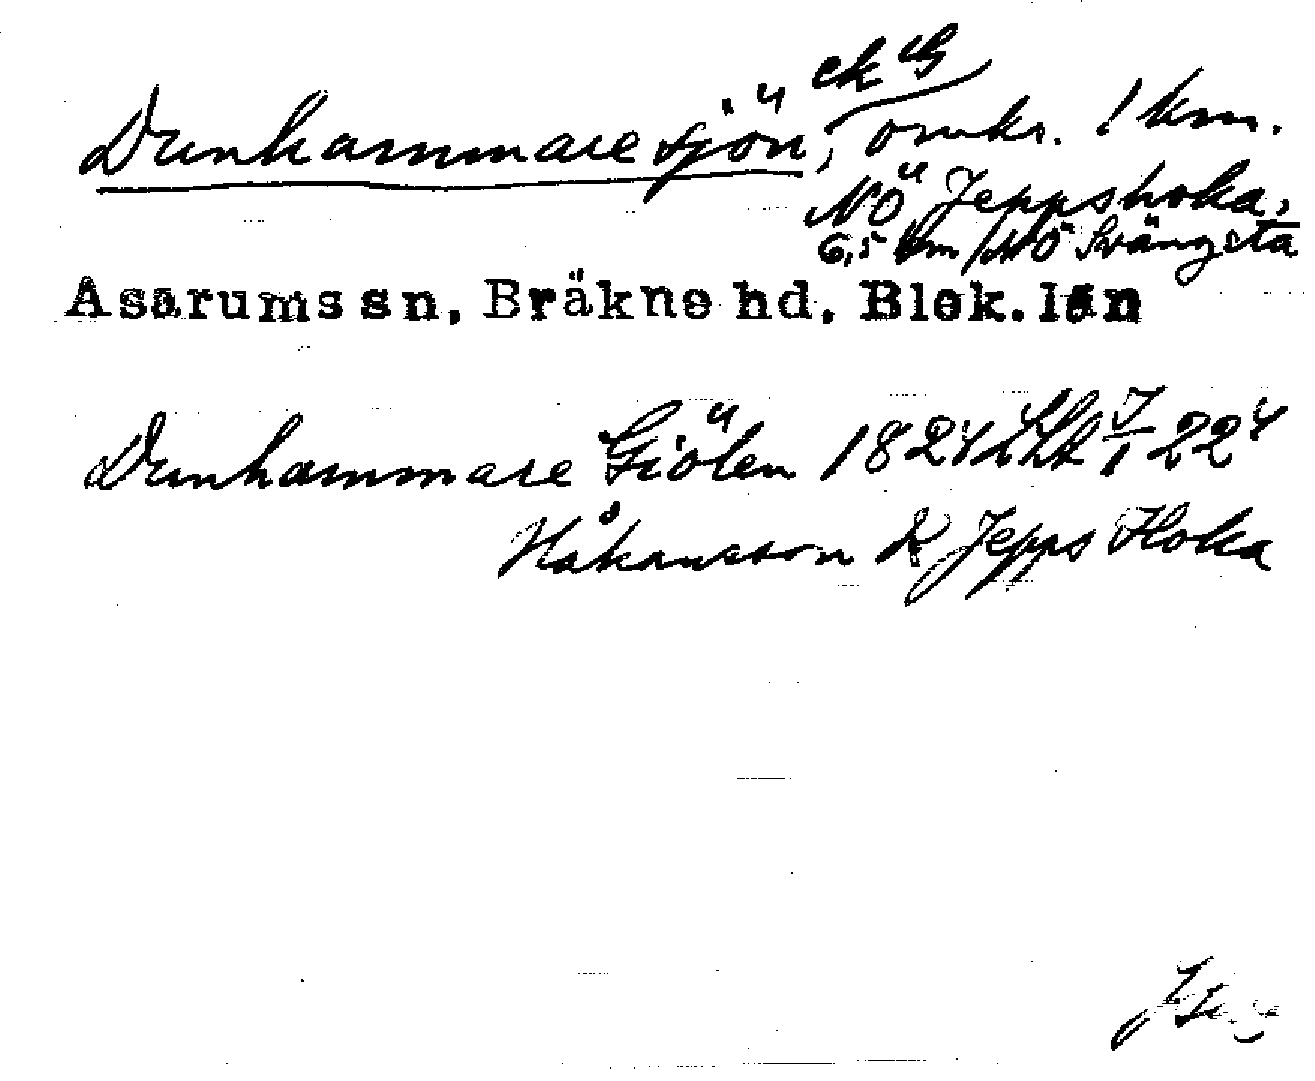 Dunhammaresjön, ek G
omkr. 1 km.
NÖ Jeppshoka,
6,5 km NÖ Svängsta
Asarums sn, Bräkne hd. Blek. län
Dunhammare Giölen 1824
Håkansson K Jepps Hoka